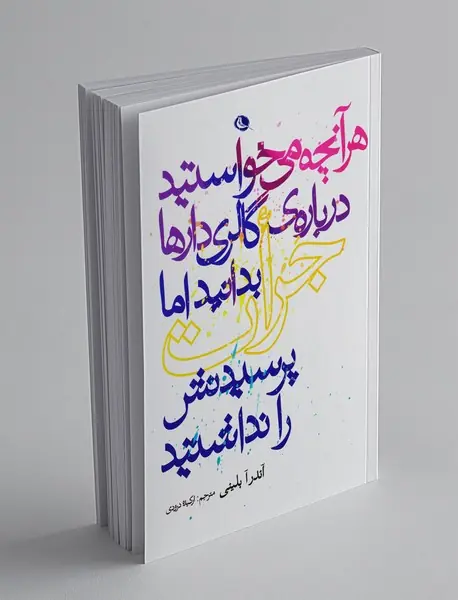 هرآنچه می‌خواستید
درباره‌ی گالری‌دارها
بدانید اما
جرأت
پرسیدنش
را نداشتید
آندرآ بلینی مترجم: